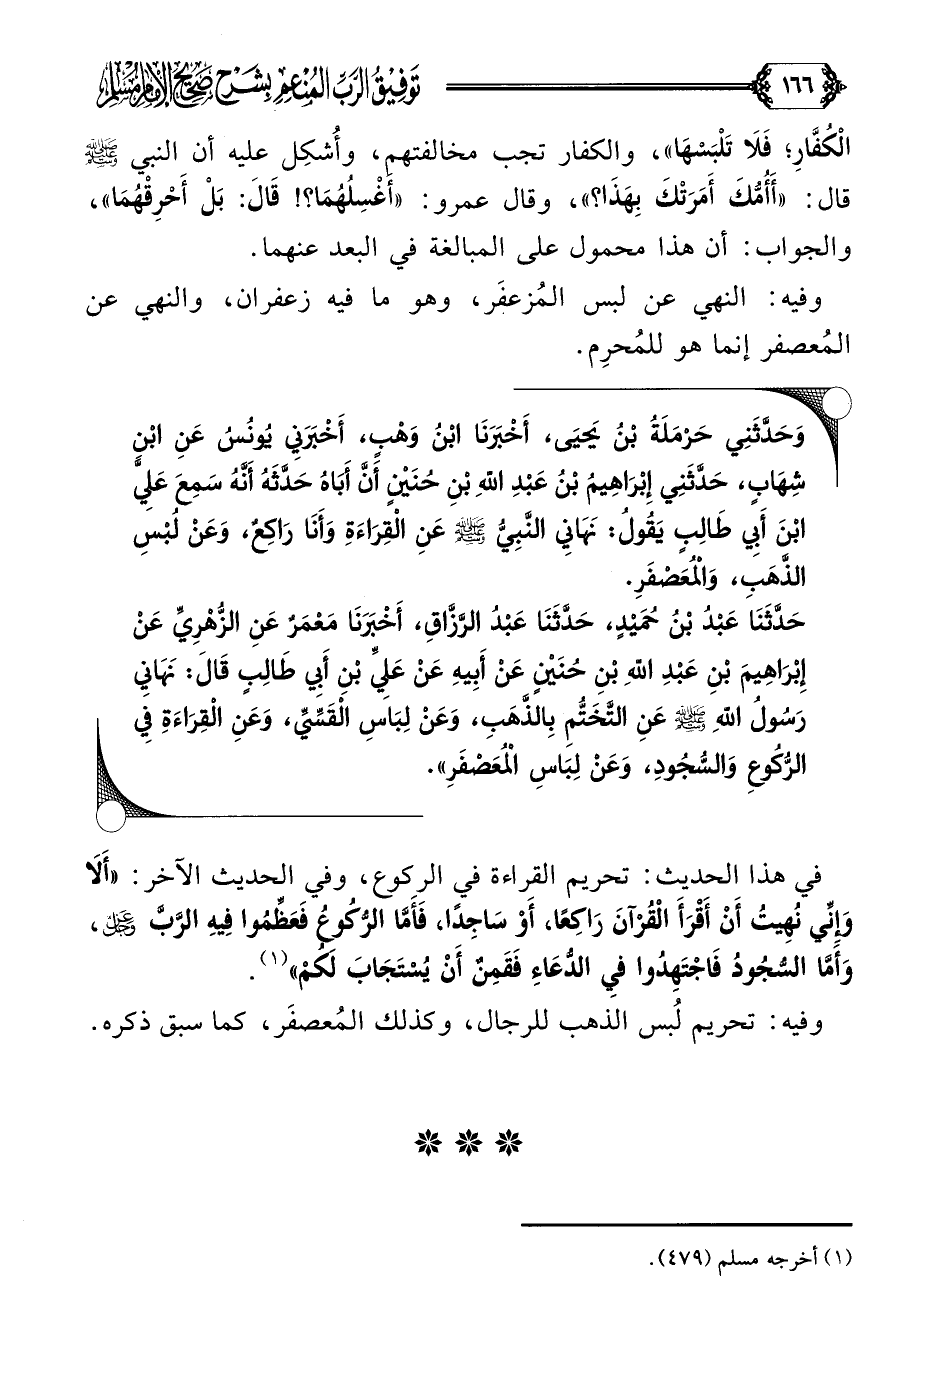 ١٦٦
تَوفِيقُ الرَبِّ المُنْعِم بِشَرْحِ صَحِيحِ الإِمَامِ مُسْلِم
الْكُفَّارِ؛ فَلَا تَلْبَسْهَا»، والكفار تجب مخالفتهم، وأُشكِل عليه أن النبي ﷺ
قال: «أَأُمُّكَ أَمَرَتْكَ بِهَذَا؟»، وقال عمرو: «أَغْسِلُهُمَا؟! قَالَ: بَلْ أَحْرِقْهُمَا»،
والجواب: أن هذا محمول على المبالغة في البعد عنهما.
وفيه: النهي عن لبس المُزعفَر، وهو ما فيه زعفران، والنهي عن
المُعصفر إنما هو للمُحرِم.
وَحَدَّثَنِي حَرْمَلَةُ بْنُ يَحْيَى، أَخْبَرَنَا ابْنُ وَهْبٍ، أَخْبَرَنِي يُونُسُ عَنِ ابْنِ
شِهَابٍ، حَدَّثَنِي إِبْرَاهِيمُ بْنُ عَبْدِ اللهِ بْنِ حُنَيْنٍ أَنَّ أَبَاهُ حَدَّثَهُ أَنَّهُ سَمِعَ عَلِيَّ
ابْنَ أَبِي طَالِبٍ يَقُولُ: نَهَانِي النَّبِيُّ ﷺ عَنِ الْقِرَاءَةِ وَأَنَا رَاكِعٌ، وَعَنْ لُبْسِ
الذَّهَبِ، وَالْمُعَصْفَرِ.
حَدَّثَنَا عَبْدُ بْنُ حُمَيْدٍ، حَدَّثَنَا عَبْدُ الرَّزَّاقِ، أَخْبَرَنَا مَعْمَرٌ عَنِ الزُّهْرِيِّ عَنْ
إِبْرَاهِيمَ بْنِ عَبْدِ اللهِ بْنِ حُنَيْنٍ عَنْ أَبِيهِ عَنْ عَلِيِّ بْنِ أَبِي طَالِبٍ قَالَ: نَهَانِي
رَسُولُ اللهِ ﷺ عَنِ التَّخَتُّمِ بِالذَّهَبِ، وَعَنْ لِبَاسِ الْقَسِّيِّ، وَعَنِ الْقِرَاءَةِ فِي
الرُّكُوعِ وَالسُّجُودِ، وَعَنْ لِبَاسِ الْمُعَصْفَرِ».
في هذا الحديث: تحريم القراءة في الركوع، وفي الحديث الآخر: «أَلَا
وَإِنِّي نُهِيتُ أَنْ أَقْرَأَ الْقُرْآنَ رَاكِعًا، أَوْ سَاجِدًا، فَأَمَّا الرُّكُوعُ فَعَظِّمُوا فِيهِ الرَّبَّ عز وجل،
وَأَمَّا السُّجُودُ فَاجْتَهِدُوا فِي الدُّعَاءِ فَقَمِنٌ أَنْ يُسْتَجَابَ لَكُمْ»(١).
وفيه: تحريم لُبس الذهب للرجال، وكذلك المُعصفَر، كما سبق ذكره.
(١) أخرجه مسلم (٤٧٩).